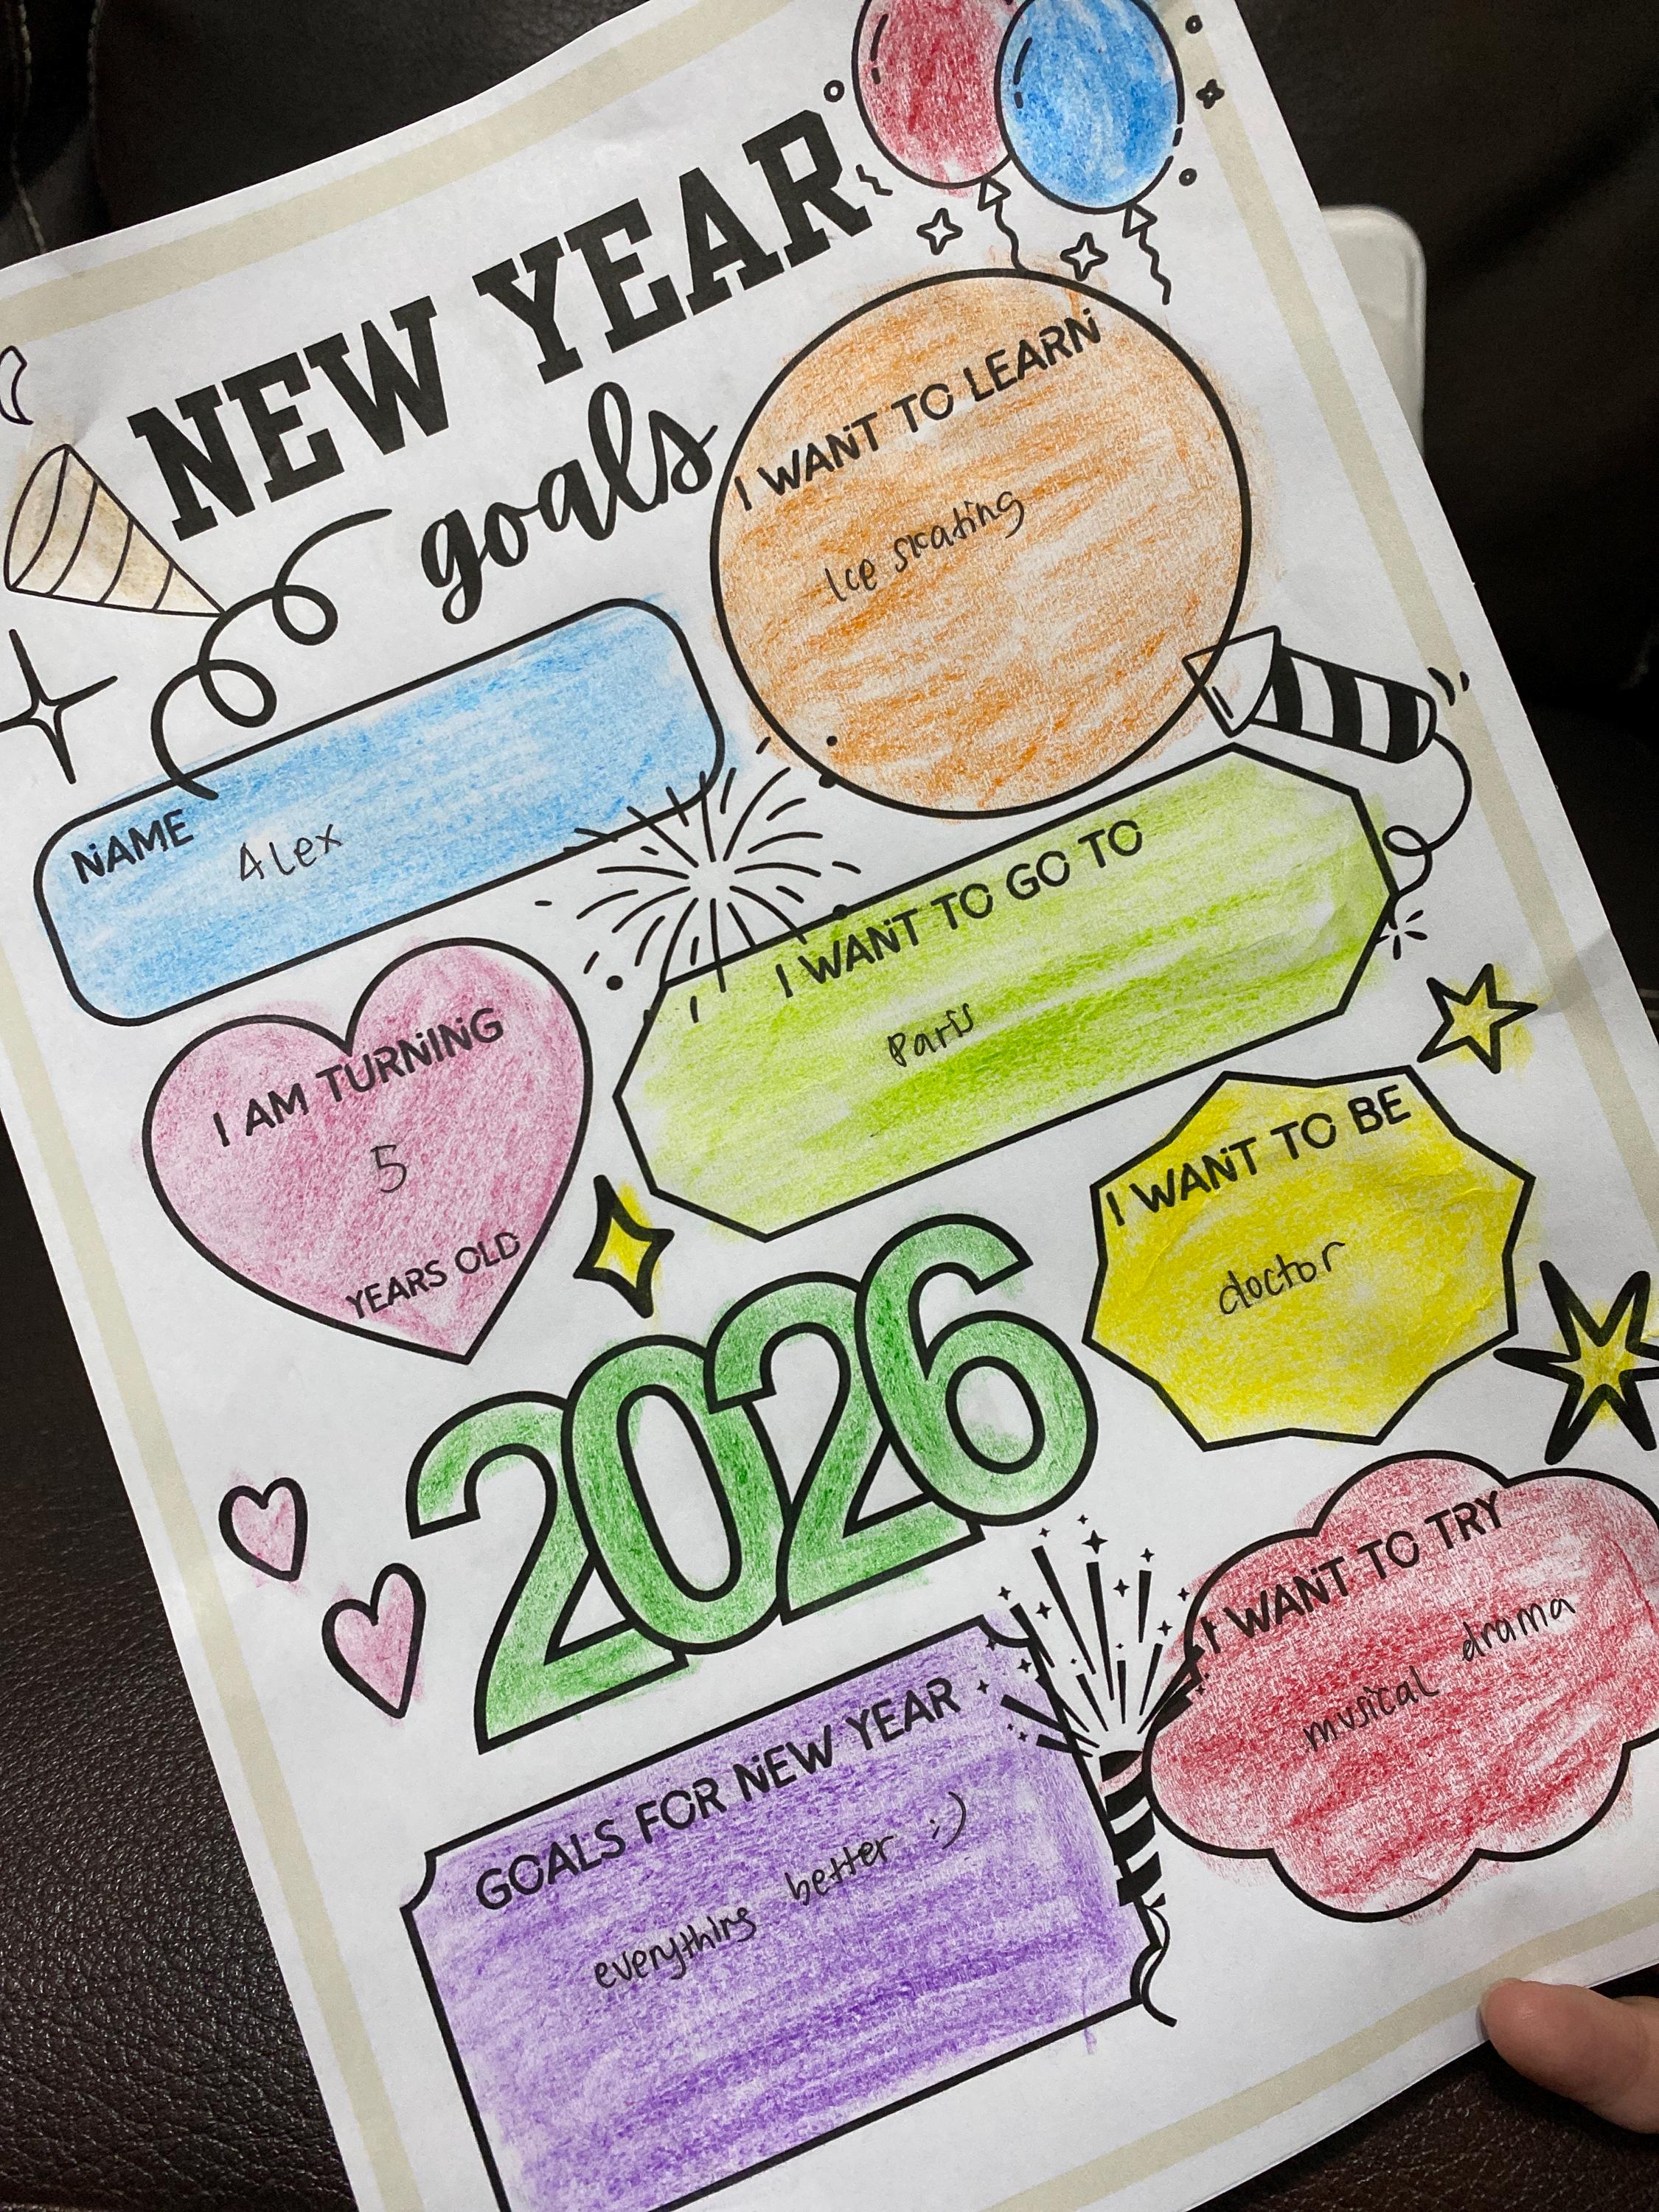 NEW YEAR
goals
I WANT TO LEARN
Ice skating
NAME Alex
I WANT TO GO TO
Paris
I AM TURNING
5
YEARS OLD
I WANT TO BE
doctor
2026
I WANT TO TRY
musical drama
GOALS FOR NEW YEAR
everything better :)